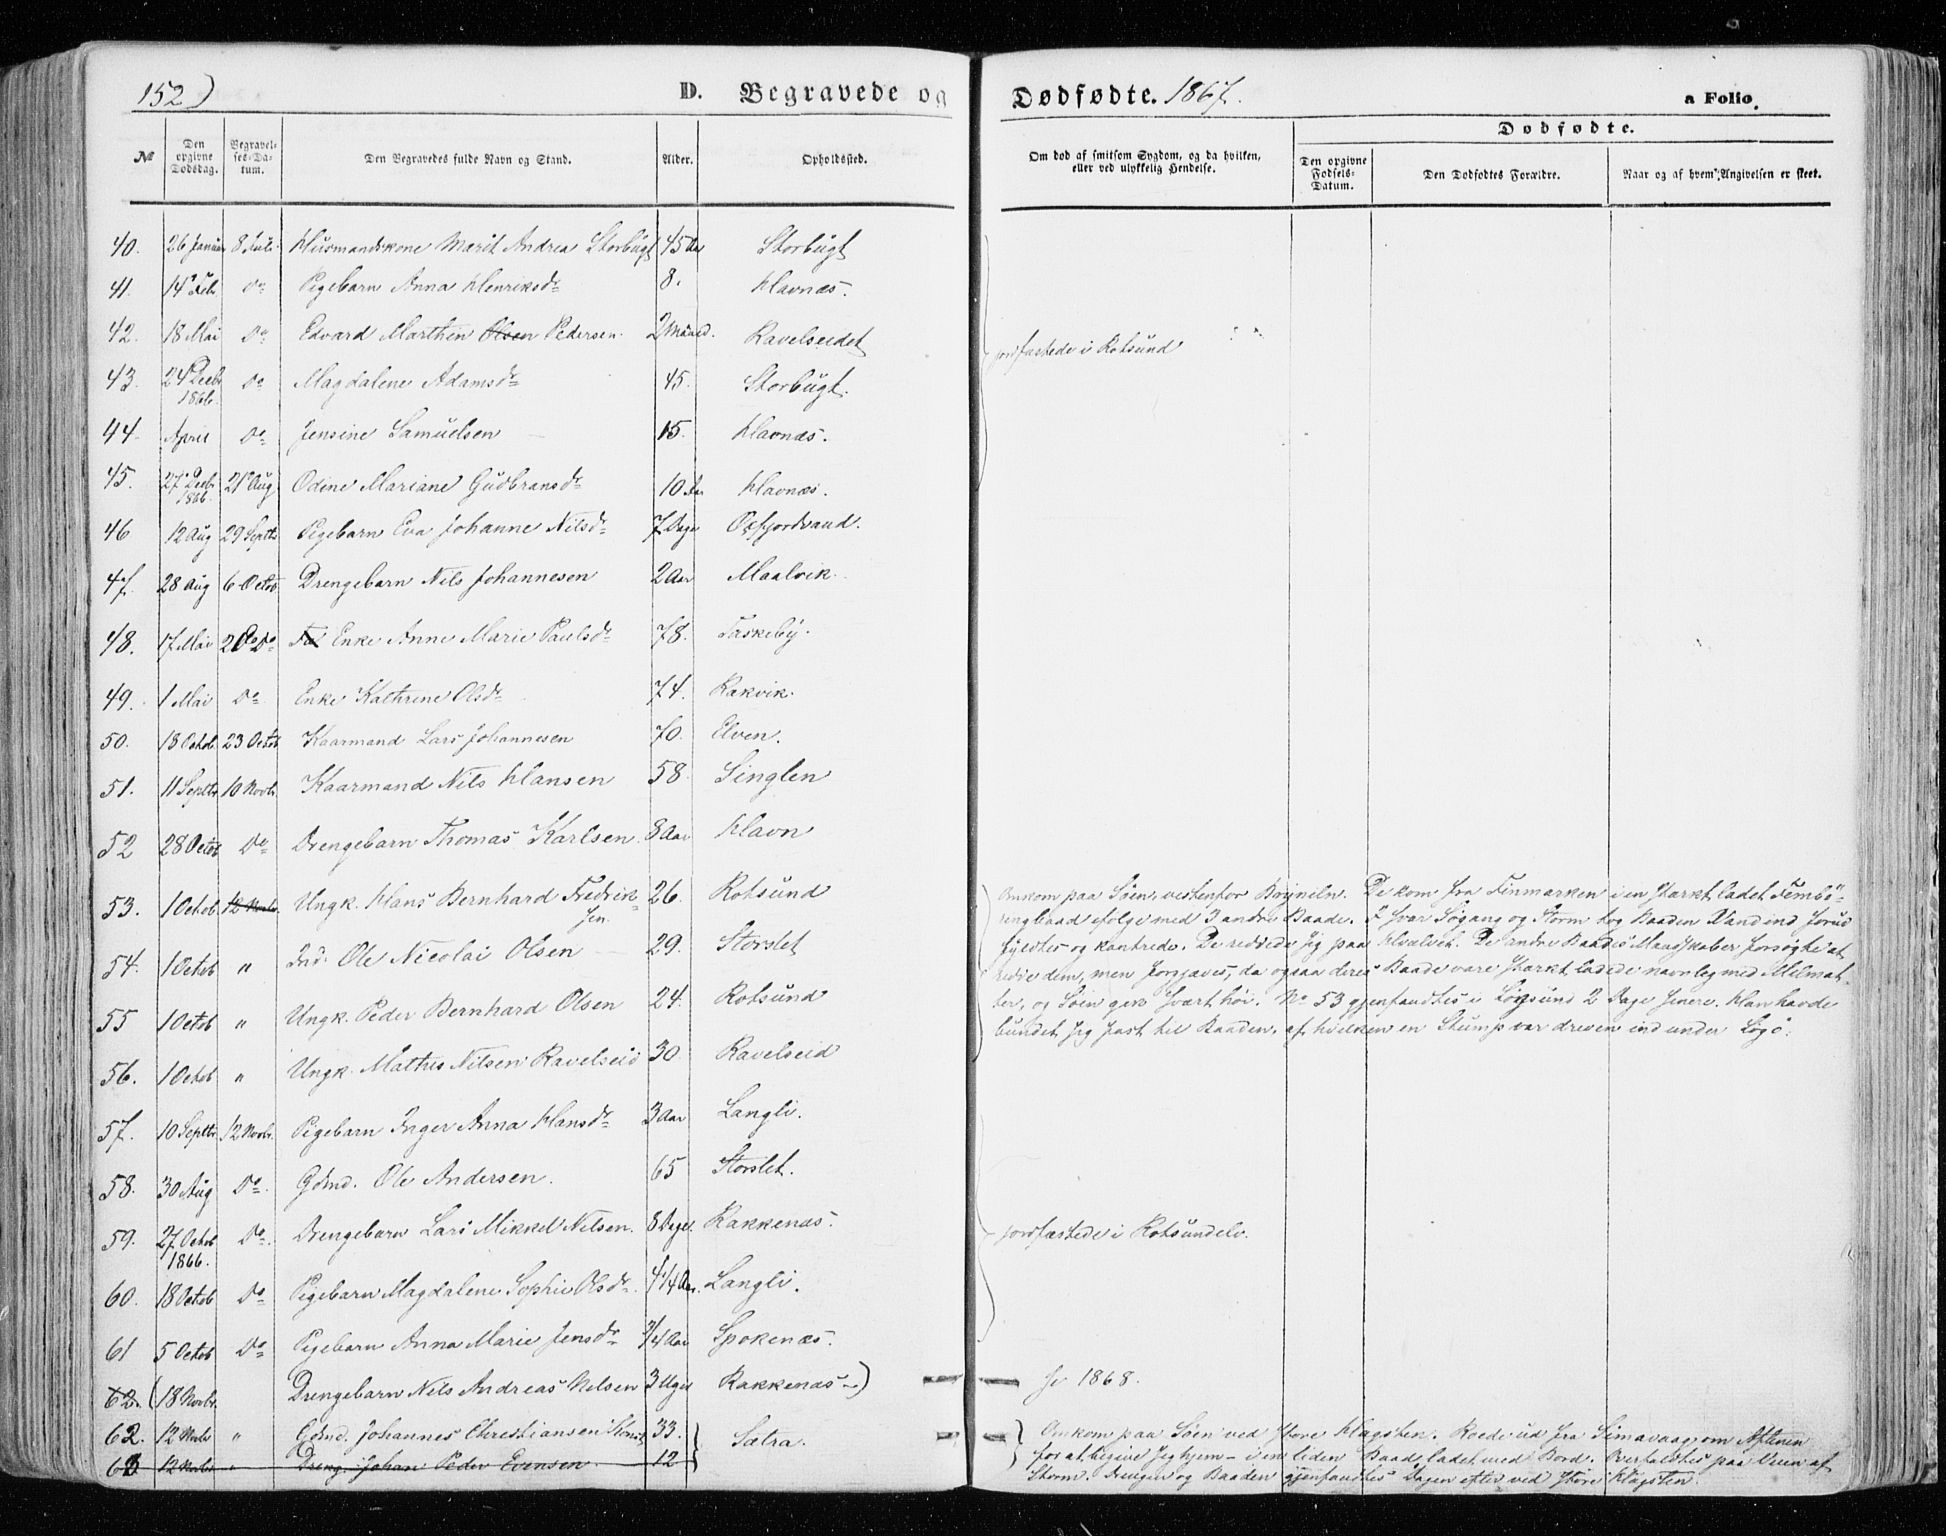 152)
D. Begravede og Dødfødte. 1867.
a Folio.
№
Den opgivne Dødsdag.
Begravelses-Datum.
Den Begravedes fulde Navn og Stand.
Alder.
Opholdssted.
Om død af smitsom Sygdom, og da hvilken, eller ved ulykkelig Hendelse.
Dødfødte.
Den opgivne Fødsels-Datum.
Den Dødfødtes Forældre.
Naar og af hvem Angivelsen er skeet.
40. 26 Januar 8 Juli Husmandskone Marit Andrea Storbugt 45 Aar Storbugt
41. 14 Feb Do Pigebarn Anna Henriksdr 8. Havnæs.
42. 18 Mai Do Edvard Marthin Olsen Pedersen. 2 Maaned. Ravelseidet jordfæstede i Rotsund
43. 24 Decbr 1866. Do Magdalene Adamsdr 45. Storbugt.
44. April Do Jensine Samuelsen 15. Havnæs.
45. 27 Decbr 1866. 21 Aug Odine Mariane Gudbransdr 10 Aar Havnæs.
46 12 Aug 29 Septbr Pigebarn Eva Johanne Nilsdr 7 Dage Oxfjordvand.
47. 28 Aug 6 Octob Drengebarn Nils Johannesen 2 Aar Maalvik.
48. 17 Mai 20 Do Enke Anne Marie Paulsdr 78. Taskeby.
49. 1 Mai Do Enke Kathrine Olsdr 74. Rakvik.
50. 18 Octob 23 Octob Kaarmand Lars Johannesen 70. Elven.
51. 11 Septbr 10 Novbr. Kaarmand Nils Hansen 58. Singlen
52 28 Octob Do Drengebarn Thomas Karlsen. 8 Aar Havn
53. 1 Octob 12 Novbr. Ungk. Hans Bernhard Fredriksen. 26. Rotsund
54. 1 Octob " Ind. Ole Nicolai Olsen 29. Storslet
55 1 Octob " Ungk. Peder Bernhard Olsen 24. Rotsund
56. 1 Octob " Ungk. Mathis Nilsen Ravelseid 30 Ravelseid
Omkom paa Søen, vestenfor Bryniln. De kom fra Finmarken i en stærkt ladet Fembø-
ringbaad i følge med 3 andre Baade. I svar Søgang og Storm tog Baaden Vand ind forud
fyldtes og kantrede. De reddede sig paa Hvælvet. De andre Baades Mandskaber forsøgte at
redde dem, men forgjæves, da ogsaa deres Baade vare stærkt ladede navnlig med Melmat-
ter, og Søen gik svært høi. No 53 gjenfandtes i Løgsund 2 Dage senere. Han havde
bundet sig fast til Baaden, af hvilken en Stump var dreven ind under Løgø.
57. 10 Septbr. 12 Novbr. Pigebarn Inger Anna Hansdr 3 Aar Langli.
58. 30 Aug Do Gdmd. Ole Andersen. 65 Storslet.
59. 27 Octob 1866. Do. Drengebarn Lars Mikkel Nilsen. 8 Dage Kakkenæs. jordfæstede i Rotsundelv.
60. 18 Octob Do Pigebarn Magdalene Sophie Olsdr. 4 1/4 Aar. Langli.
61 5 Octob Do Pigebarn Anna Marie Jensdr 3/4 Aar Spokenæs.
62. (18 Novbr. Drengebarn Nils Andreas Nilsen 3 Uger Kakkenæs.) se 1868.
62. 12 Novbr " Gdmd. Johannes Christiansen 33. Sætra.
63 12 Novbr " Dreng. Johan Peder Evensen. 12
Omkom paa Søen ved Store Klagsten. Roede ud fra Simavaag om Aftenen
for at begive sig hjem – i en liden Baad, ladet med Bord. Overfaldtes paa Veien af
Storm. Drengen og Baaden gjenfandtes Dagen efter ved Store Klagsten.